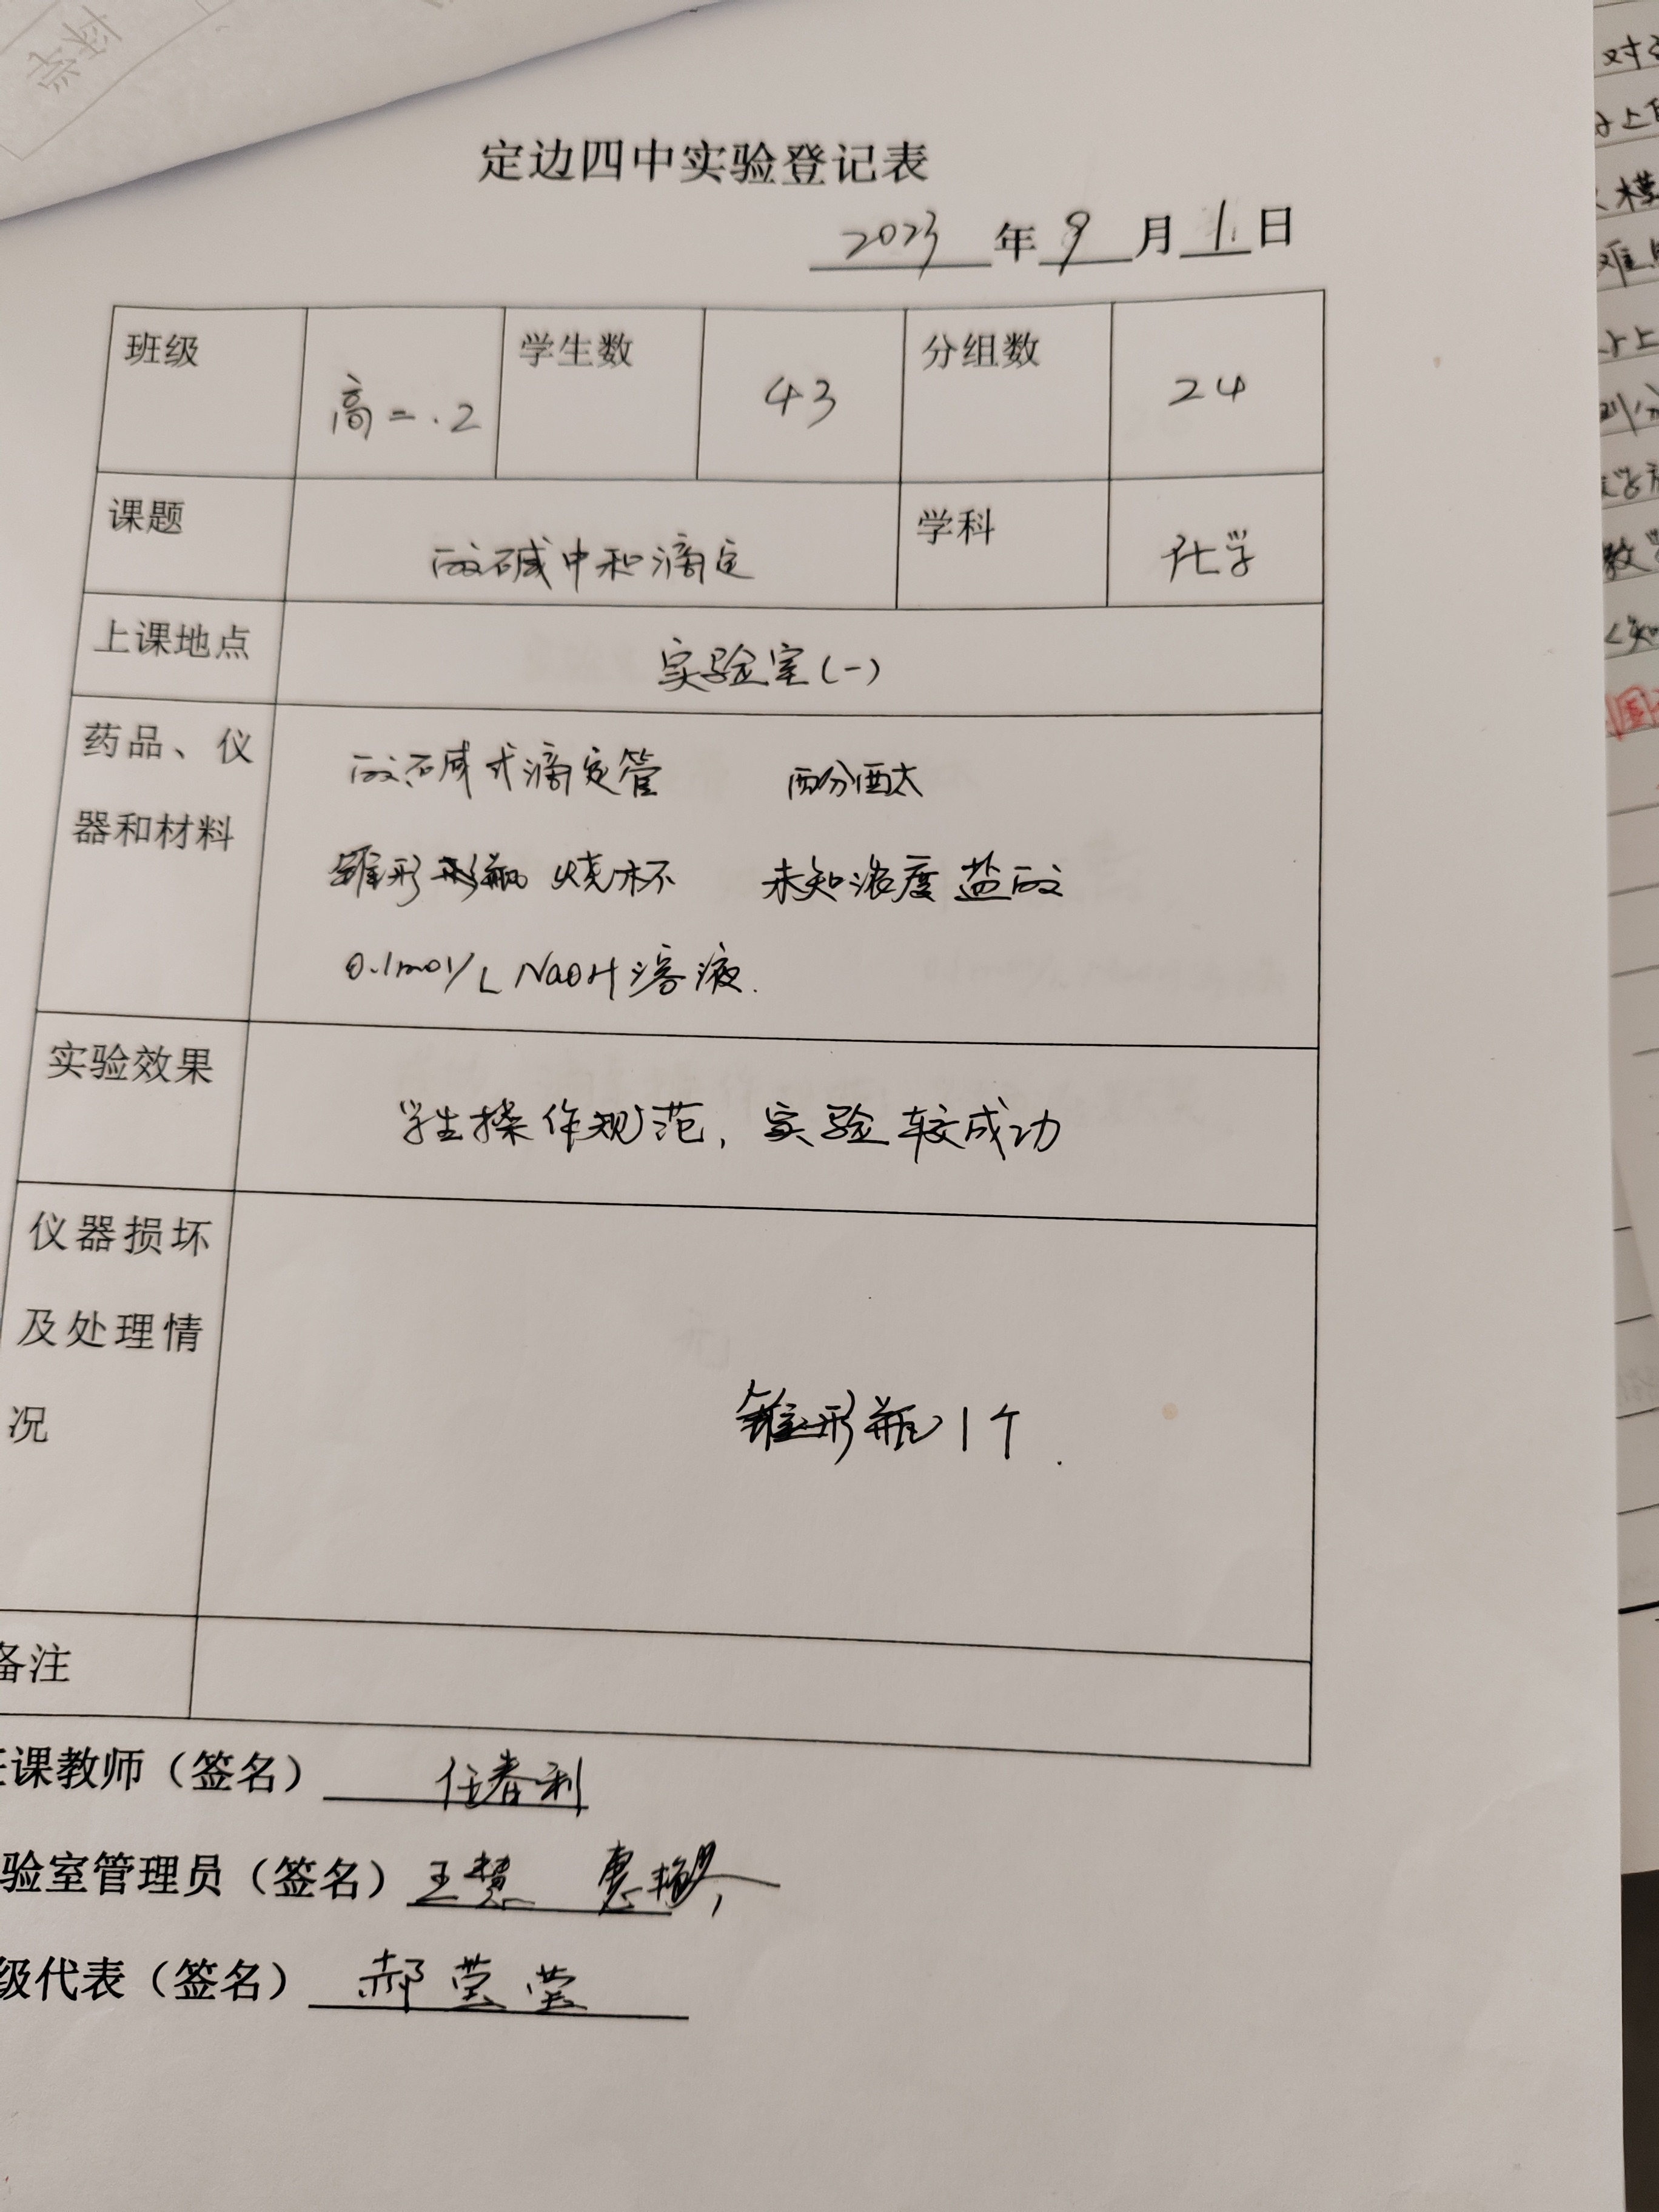 定边四中实验登记表
2023 年 9 月 1 日
班级 高二.2 学生数 43 分组数 24
课题 酸碱中和滴定 学科 化学
上课地点 实验室(一)
药品、仪 酸碱式滴定管 酚酞
器和材料 锥形瓶 烧杯 未知浓度盐酸
0.1mol/L NaOH溶液.
实验效果 学生操作规范, 实验较成功
仪器损坏
及处理情
况 锥形瓶1个.
备注
课教师（签名） 任春利
验室管理员（签名） 王慧
级代表（签名） 郝莹莹